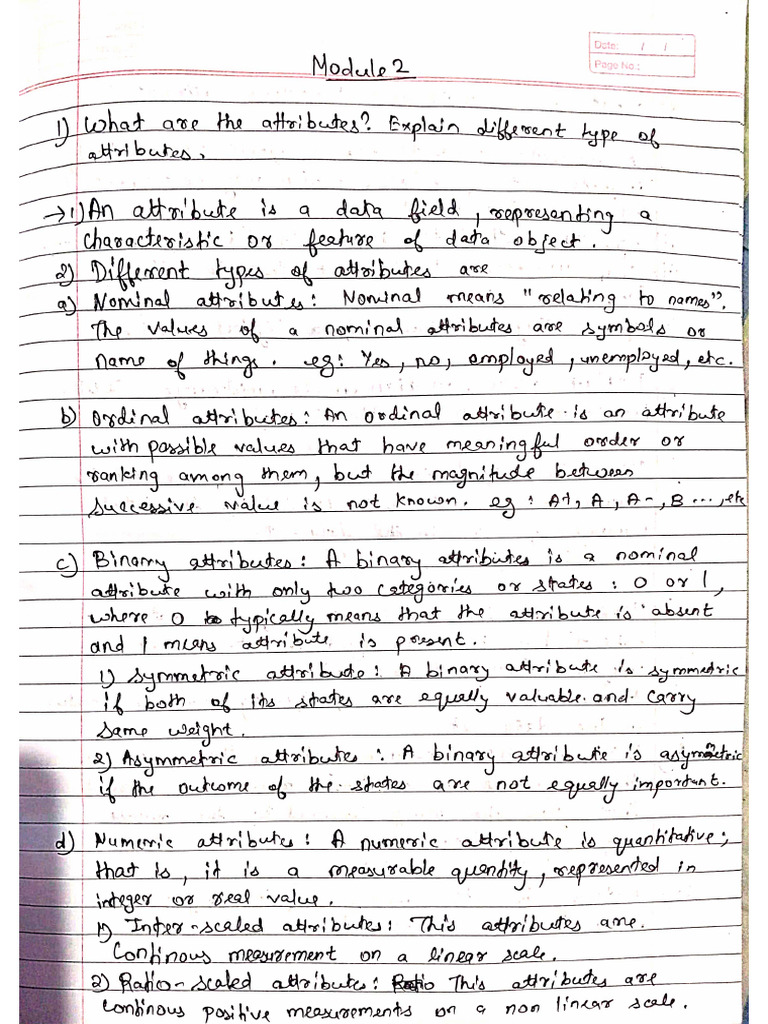 Date: / /
Page No.:
Module 2
1) What are the attributes? Explain different type of
attributes.
→ 1) An attribute is a data field, representing a
characteristic or feature of data object.
2) Different types of attributes are
a) Nominal attributes: Nominal means "relating to names".
The values of a nominal attributes are symbols or
name of things. eg: Yes, no, employed, unemployed, etc.
b) Ordinal attributes: An ordinal attribute is an attribute
with possible values that have meaningful order or
ranking among them, but the magnitude between
successive value is not known. eg: A+, A, A-, B ..., etc
c) Binary attributes: A binary attributes is a nominal
attribute with only two categories or states: 0 or 1,
where 0 typically means that the attribute is absent
and 1 means attribute is present.
1) Symmetric attribute: A binary attribute is symmetric
if both of its states are equally valuable and carry
same weight.
2) Asymmetric attributes: A binary attribute is asymmetric
if the outcome of the states are not equally important.
d) Numeric attributes: A numeric attribute is quantitative;
that is, it is a measurable quantity, represented in
integer or real value.
1) Inter-scaled attributes: This attributes are
Continous measurement on a linear scale.
2) Ratio-scaled attributes: This attributes are
continous positive measurements on a non linear scale.